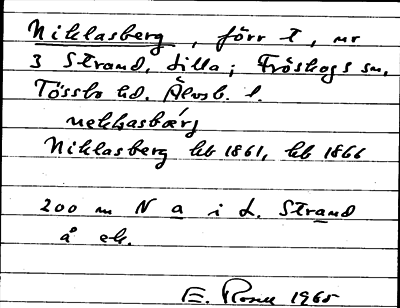 Niklasberg, förr t, nr
3 Strand, Lilla; Fröskogs sn,
Tössbo hd. Älvsb. l.
nekḷasbærj
Niklasberg hb 1861, hb 1866
200 m N a i L. Strand
å ek.
E. Rosen 1965